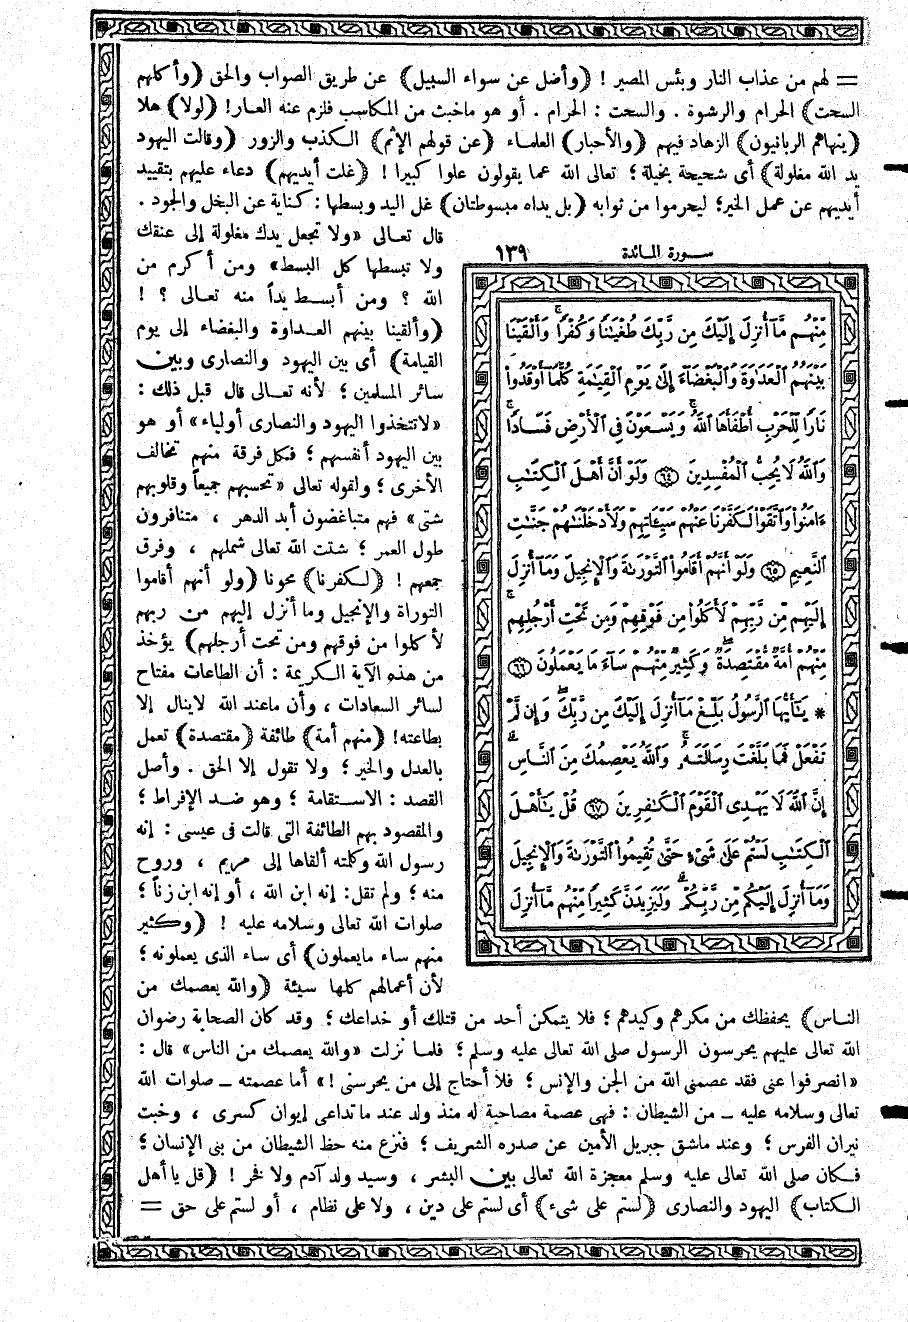 = لهم من عذاب النار وبئس المصير ! (وأضل عن سواء السبيل) عن طريق الصواب والحق (وأكلهم
السحت) الحرام والرشوة . والسحت : الحرام . أو هو ماخبث من المكاسب فلزم عنه العار! (لولا) هلا
(ينهاهم الربانيون) الزهاد فيهم (والأحبار) العلماء (عن قولهم الإثم) الكذب والزور (وقالت اليهود
يد الله مغلولة) أى شحيحة بخيلة ؛ تعالى الله عما يقولون علوا كبيرا ! (غلت أيديهم) دعاء عليهم بتقييد
أيديهم عن عمل الخير؛ ليحرموا من ثوابه (بل يداه مبسوطتان) غل اليد وبسطها : كناية عن البخل والجود .
قال تعالى «ولا تجعل يدك مغلولة إلى عنقك
ولا تبسطها كل البسط» ومن أكرم من
الله ؟ ومن أبسط يداً منه تعالى ؟ !
(وألقينا بينهم العداوة والبغضاء إلى يوم
القيامة) أى بين اليهود والنصارى وبين
سائر المسلمين ؛ لأنه تعالى قال قبل ذلك :
«لاتتخذوا اليهود والنصارى أولياء» أو هو
بين اليهود أنفسهم ؛ فكل فرقة منهم تخالف
الأخرى ؛ ولقوله تعالى «تحسبهم جميعاً وقلوبهم
شتى» فهم متباغضون أبد الدهر ، متنافرون
طول العمر ؛ شتت الله تعالى شملهم ، وفرق
جمعهم ! (لكفرنا) محونا (ولو أنهم أقاموا
التوراة والإنجيل وما أنزل إليهم من ربهم
لأكلوا من فوقهم ومن تحت أرجلهم) يؤخذ
من هذه الآية الكريمة : أن الطاعات مفتاح
لسائر السعادات ، وأن ماعند الله لاينال إلا
بطاعته! (منهم أمة) طائفة (مقتصدة) تعمل
بالعدل والخير ؛ ولا تقول إلا الحق . وأصل
القصد : الاستقامة ؛ وهو ضد الإفراط ؛
والمقصود بهم الطائفة التى قالت فى عيسى : إنه
رسول الله وكلمته ألقاها إلى مريم ، وروح
منه ؛ ولم تقل: إنه ابن الله ، أو إنه ابن زناً ؛
صلوات الله تعالى وسلامه عليه ! (وكثير
منهم ساء مايعملون) أى ساء الذى يعملونه ؛
لأن أعمالهم كلها سيئة (والله يعصمك من
سورة المائدة ١٣٩
مِّنْهُم مَّآ أُنزِلَ إِلَيْكَ مِن رَّبِّكَ طُغْيَـٰنًا وَكُفْرًا ۚ وَأَلْقَيْنَا
بَيْنَهُمُ ٱلْعَدَاوَةَ وَٱلْبَغْضَآءَ إِلَىٰ يَوْمِ ٱلْقِيَـٰمَةِ ۚ كُلَّمَآ أَوْقَدُوا۟
نَارًا لِّلْحَرْبِ أَطْفَأَهَا ٱللَّهُ ۚ وَيَسْعَوْنَ فِى ٱلْأَرْضِ فَسَادًا ۚ
وَٱللَّهُ لَا يُحِبُّ ٱلْمُفْسِدِينَ ٦٤ وَلَوْ أَنَّ أَهْلَ ٱلْكِتَـٰبِ
ءَامَنُوا۟ وَٱتَّقَوْا۟ لَكَفَّرْنَا عَنْهُمْ سَيِّـَٔاتِهِمْ وَلَأَدْخَلْنَـٰهُمْ جَنَّـٰتِ
ٱلنَّعِيمِ ٦٥ وَلَوْ أَنَّهُمْ أَقَامُوا۟ ٱلتَّوْرَىٰةَ وَٱلْإِنجِيلَ وَمَآ أُنزِلَ
إِلَيْهِم مِّن رَّبِّهِمْ لَأَكَلُوا۟ مِن فَوْقِهِمْ وَمِن تَحْتِ أَرْجُلِهِم ۚ
مِّنْهُمْ أُمَّةٌ مُّقْتَصِدَةٌ ۖ وَكَثِيرٌ مِّنْهُمْ سَآءَ مَا يَعْمَلُونَ ٦٦
* يَـٰٓأَيُّهَا ٱلرَّسُولُ بَلِّغْ مَآ أُنزِلَ إِلَيْكَ مِن رَّبِّكَ ۖ وَإِن لَّمْ
تَفْعَلْ فَمَا بَلَّغْتَ رِسَالَتَهُۥ ۚ وَٱللَّهُ يَعْصِمُكَ مِنَ ٱلنَّاسِ ۗ
إِنَّ ٱللَّهَ لَا يَهْدِى ٱلْقَوْمَ ٱلْكَـٰفِرِينَ ٦٧ قُلْ يَـٰٓأَهْلَ
ٱلْكِتَـٰبِ لَسْتُمْ عَلَىٰ شَىْءٍ حَتَّىٰ تُقِيمُوا۟ ٱلتَّوْرَىٰةَ وَٱلْإِنجِيلَ
وَمَآ أُنزِلَ إِلَيْكُم مِّن رَّبِّكُمْ ۗ وَلَيَزِيدَنَّ كَثِيرًا مِّنْهُم مَّآ أُنزِلَ
الناس) يحفظك من مكرهم وكيدهم ؛ فلا يتمكن أحد من قتلك أو خداعك ؛ وقد كان الصحابة رضوان
الله تعالى عليهم يحرسون الرسول صلى الله تعالى عليه وسلم ؛ فلما نزلت «والله يعصمك من الناس» قال :
«انصرفوا عنى فقد عصمنى الله من الجن والإنس ؛ فلا أحتاج إلى من يحرسنى !» أما عصمته ــ صلوات الله
تعالى وسلامه عليه ــ من الشيطان : فهى عصمة مصاحبة له منذ ولد عند ما تداعى إيوان كسرى ، وخبت
نيران الفرس ؛ وعند ماشق جبريل الأمين عن صدره الشريف ؛ فنزع منه حظ الشيطان من بنى الإنسان ؛
فكان صلى الله تعالى عليه وسلم معجزة الله تعالى بين البشر ، وسيد ولد آدم ولا فخر ! (قل يا أهل
الكتاب) اليهود والنصارى (لستم على شىء) أى لستم على دين ، ولا على نظام ، أو لستم على حق =